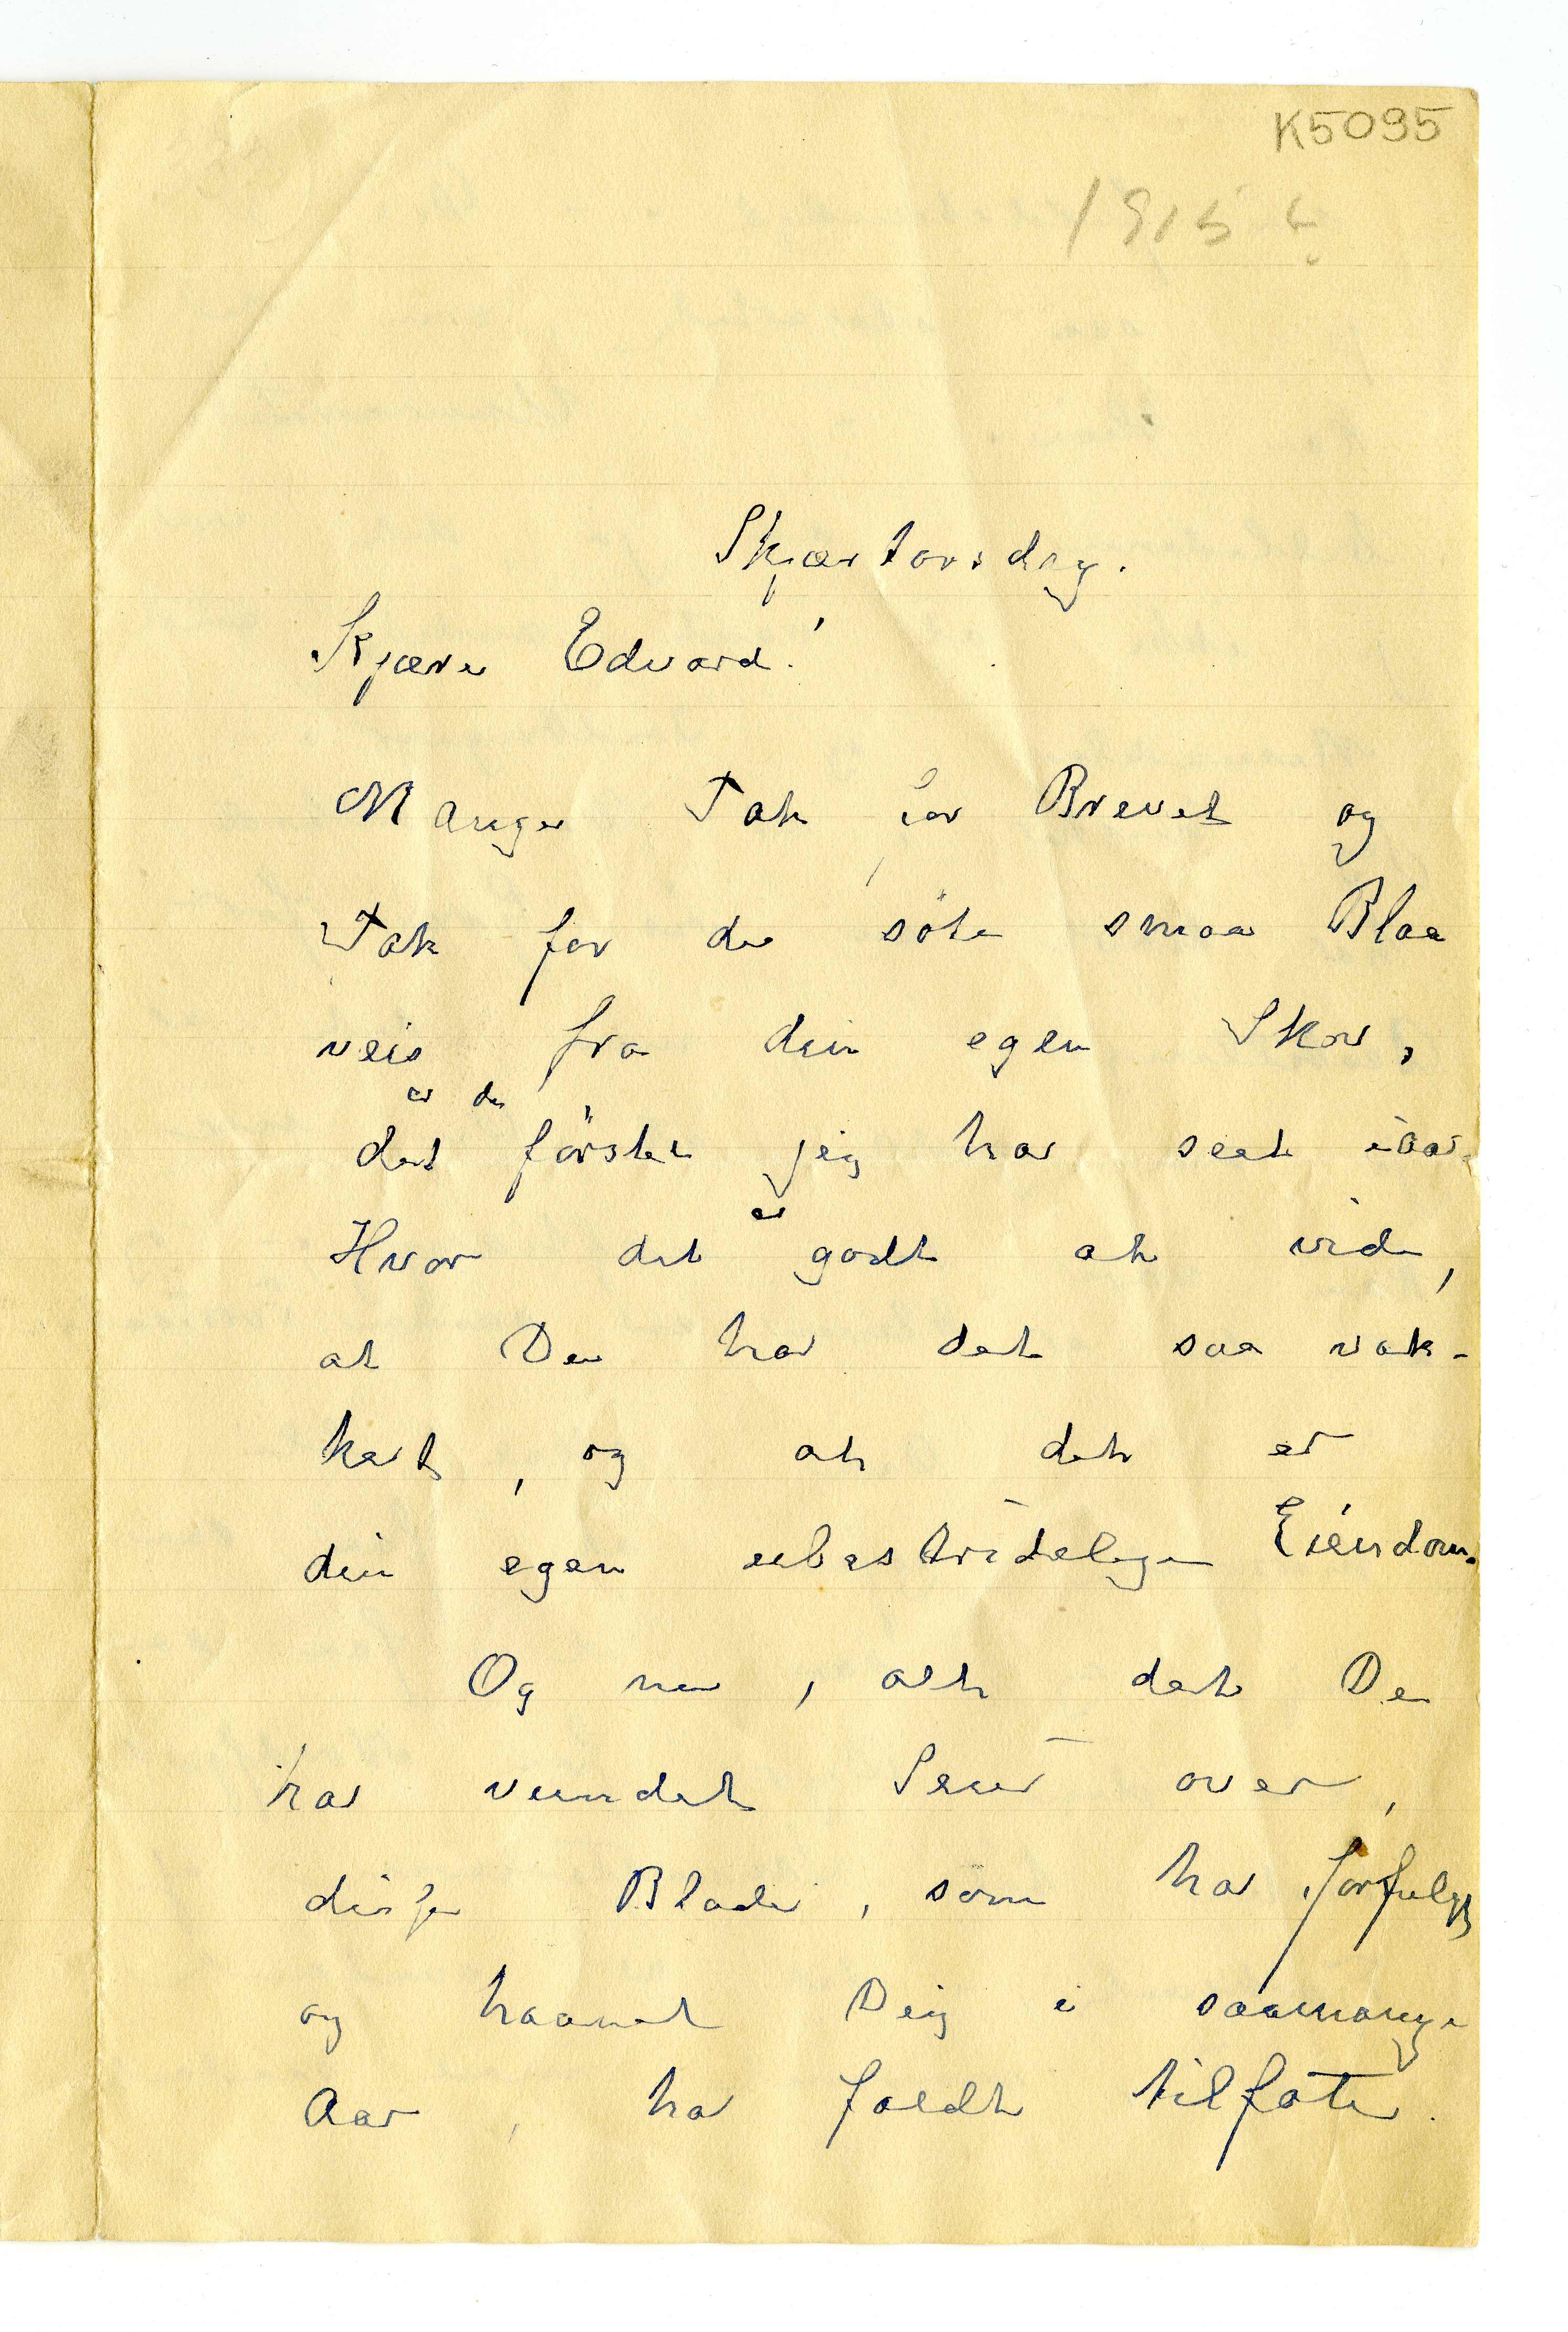 K5095
1915 ?
Skjærtorsdag.
Kjære Edvard!
Mange Tak for Brevet og
Tak for de söte smaa Blaa
veis fra din egen Skov,
er de
det förste jeg har seet iaar.
er
Hvor det godt at vide,
at Du har det saa vak-
kert, og at det er
din egen ubestridelige Eiendom.
Og nu, alt det Du
har vundet Seier over,
disse Blade, som har forfulgt
og haanet Deig i saamange
Aar, har faldt tilfote.